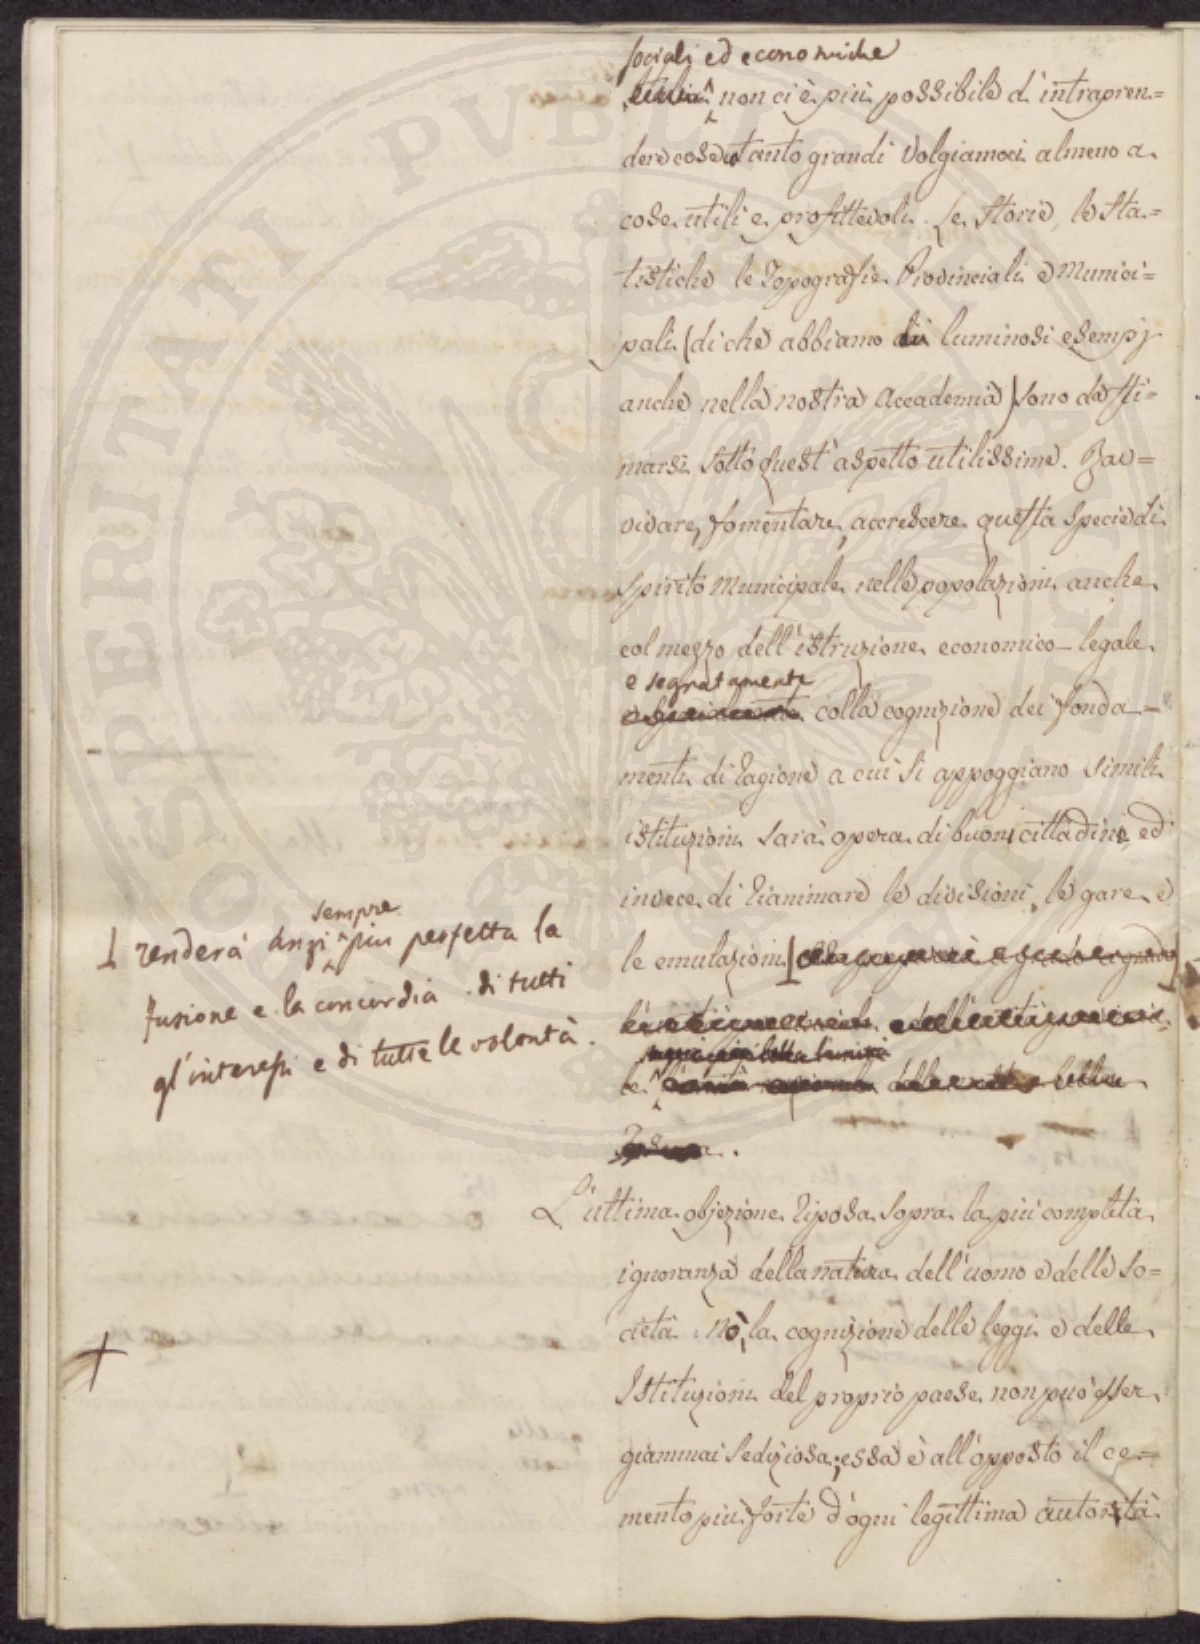 sociali ed economiche
non ci è più possibile d'intrapren=
dere cose tanto grandi volgiamoci almeno a
cose utili e profittevoli. Le Storie, le Sta=
tistiche le Topografie Provinciali e Munici=
pali (di che abbiamo luminosi esempj
anche nella nostra Accademia) sono da sti=
marsi sotto quest'aspetto utilissime. Rav=
vivare, fomentare, accrescere questa specie di
spirito Municipale nelle popolazioni anche
col mezzo dell'istruzione economico-legale
e segnatamente
colla cognizione dei fonda-
menti di ragione a cui si appoggiano simili
istituzioni sarà opera di buoni cittadini ed
invece di rianimare le divisioni, le gare e
le emulazioni
sempre
renderà anzi più perfetta la
fusione e la concordia di tutti
gl'interessi e di tutte le volontà.
L'ultima objezione riposa sopra la più completa
ignoranza della natura dell'uomo e delle so=
cietà: Nò, la cognizione delle leggi e delle
Istituzioni del proprio paese non può esser
giammai sediziosa; essa è all'opposto il ce=
mento più forte d'ogni legittima autorità
PROSPERITATI PVBLICAE